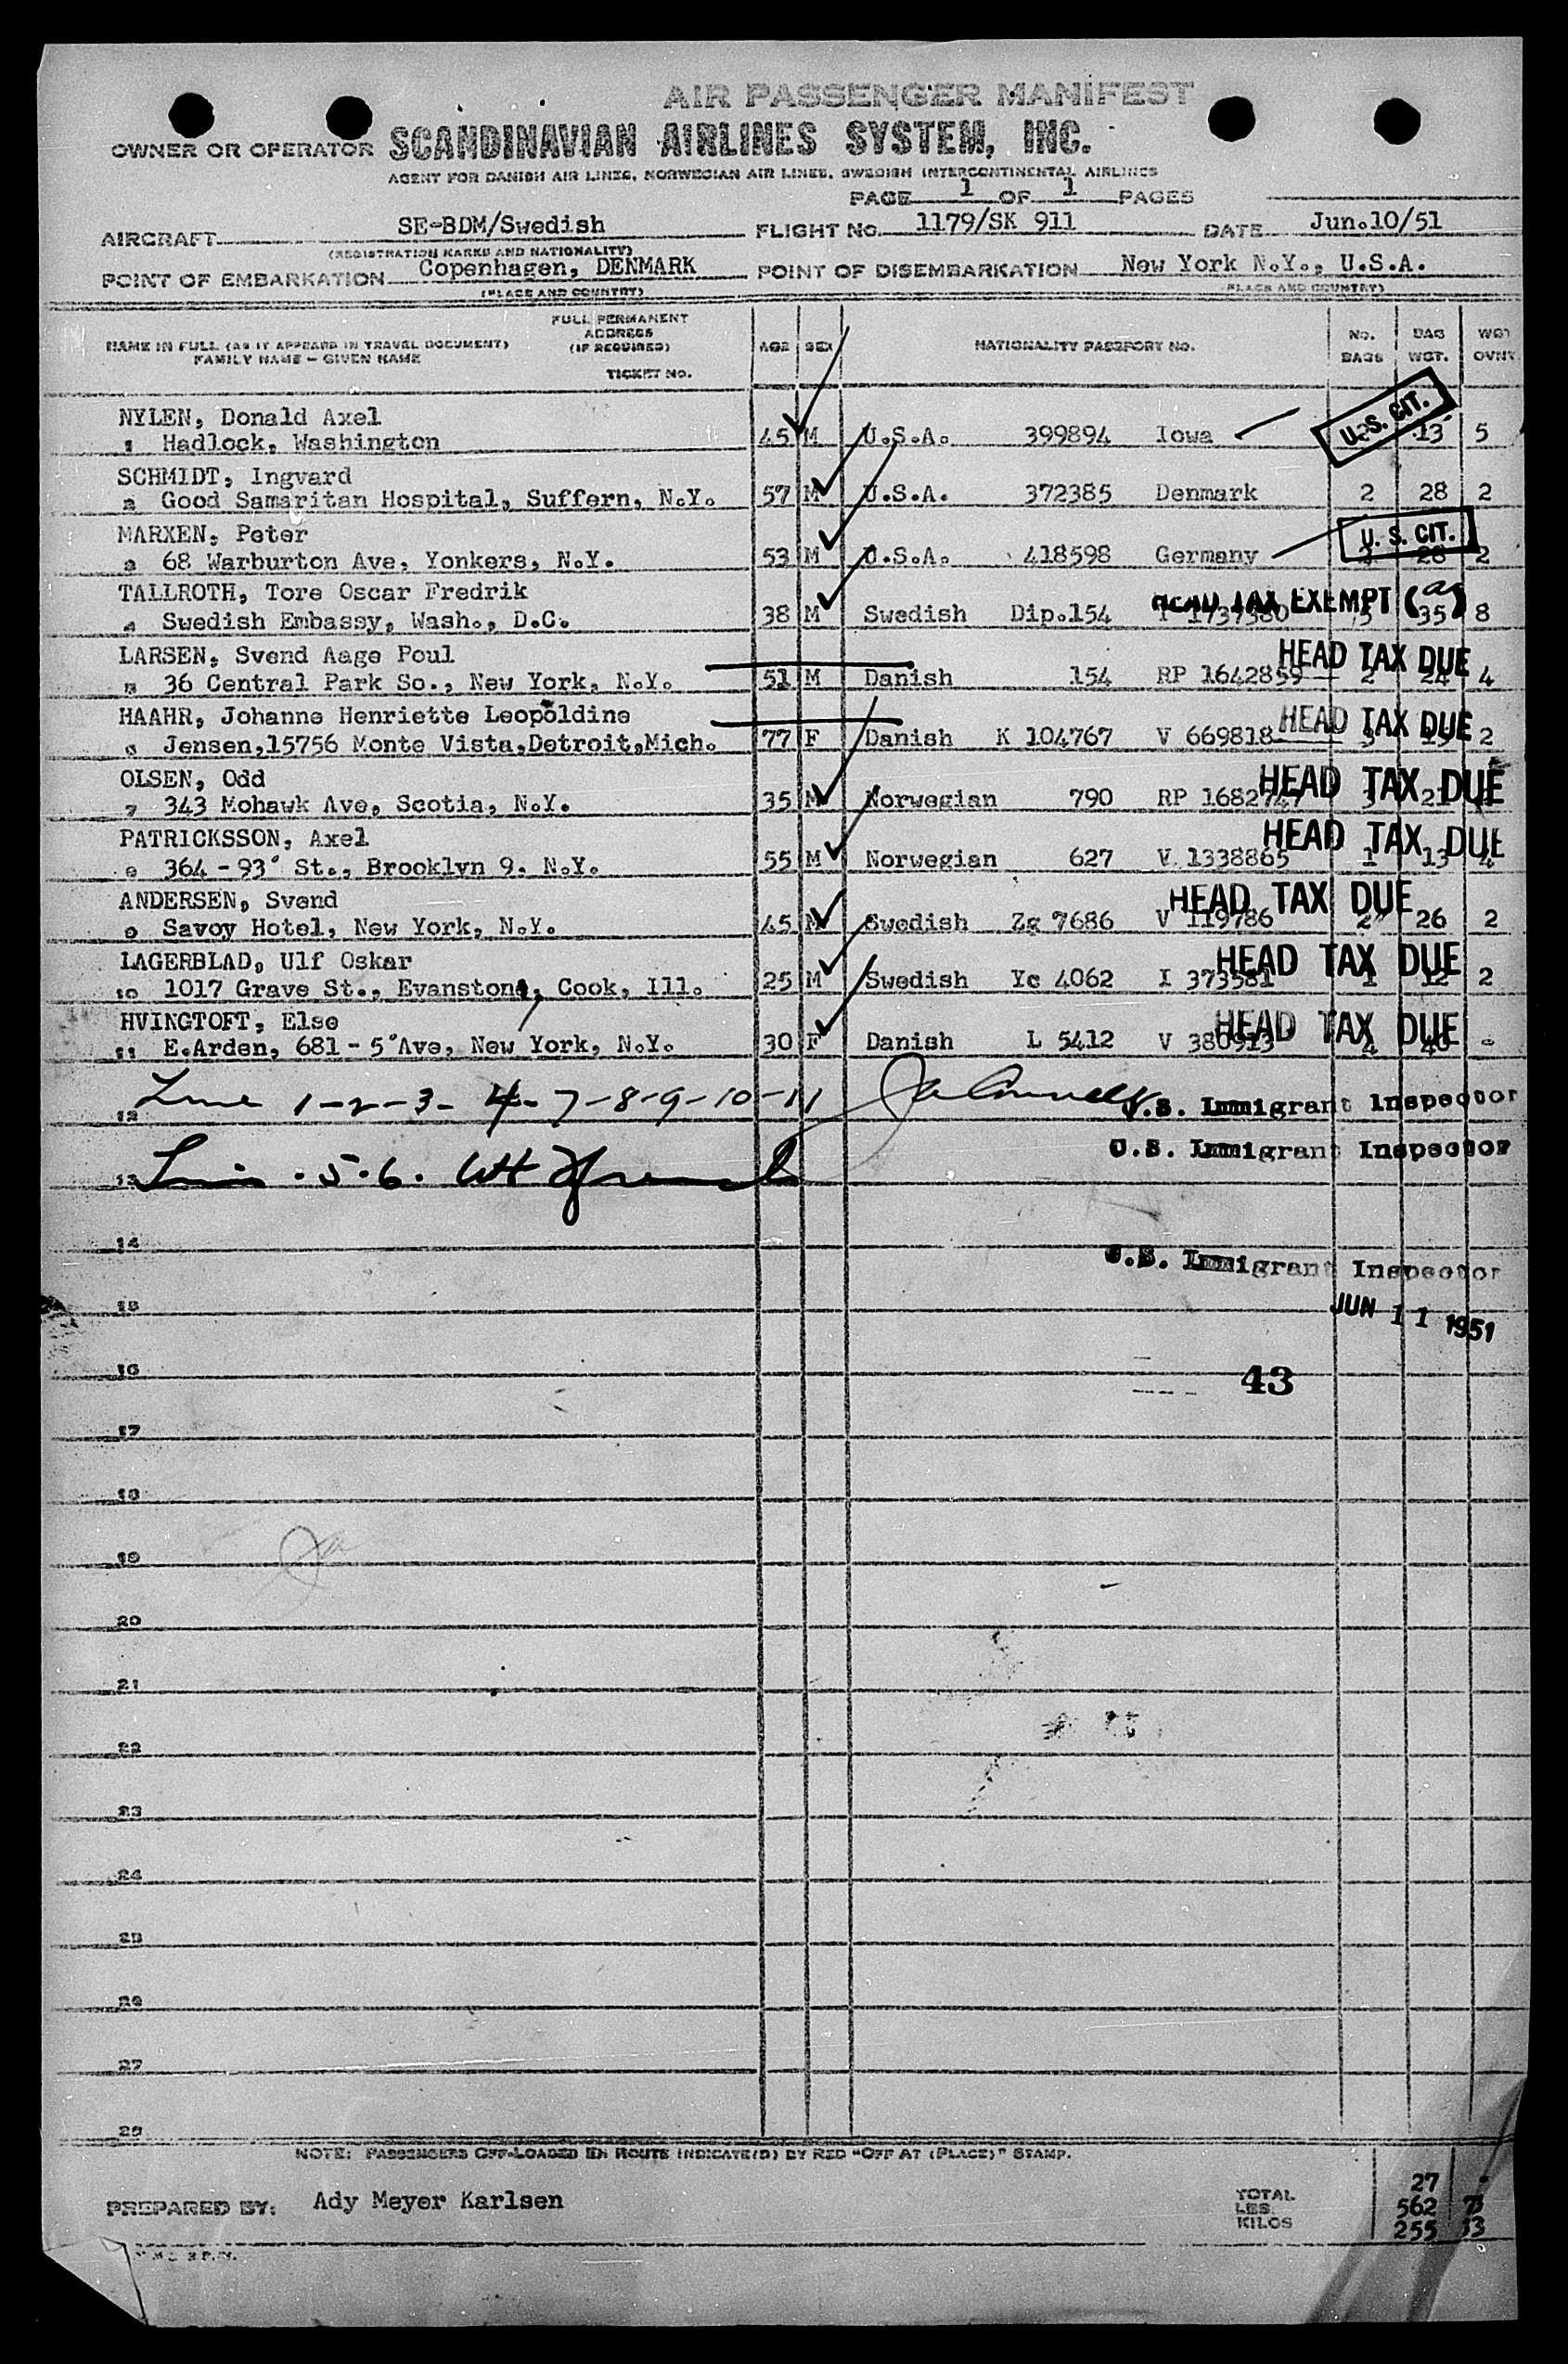 AIR PASSENGER MANIFEST
OWNER OR OPERATOR SCANDINAVIAN AIRLINES SYSTEM, INC.
AGENT FOR DANISH AIR LINES, NORWEGIAN AIR LINES, SWEDISH INTERCONTINENTAL AIRLINES
PAGE 1 OF 1 PAGES
AIRCRAFT SE-BDM/Swedish FLIGHT NO. 1179/SK 911 DATE Jun.10/51
(REGISTRATION MARKS AND NATIONALITY)
POINT OF EMBARKATION Copenhagen, DENMARK POINT OF DISEMBARKATION New York N.Y., U.S.A.
(PLACE AND COUNTRY) (PLACE AND COUNTRY)
NAME IN FULL (AS IT APPEARS IN TRAVEL DOCUMENT)
FAMILY NAME - GIVEN NAME
FULL PERMANENT
ADDRESS
(IF REQUIRED)
TICKET NO.
AGE SEX NATIONALITY PASSPORT NO. NO. BAGS BAG WGT. WGT OVNT
NYLEN, Donald Axel
1 Hadlock, Washington 45 M U.S.A. 399894 Iowa U.S. CIT. 13 5
SCHMIDT, Ingvard
2 Good Samaritan Hospital, Suffern, N.Y. 57 M U.S.A. 372385 Denmark 2 28 2
MARXEN, Peter
3 68 Warburton Ave, Yonkers, N.Y. 53 M U.S.A. 418598 Germany U. S. CIT. 28 2
TALLROTH, Tore Oscar Fredrik HEAD TAX EXEMPT
4 Swedish Embassy, Wash., D.C. 38 M Swedish Dip.154 35 8
LARSEN, Svend Aage Poul HEAD TAX DUE
5 36 Central Park So., New York, N.Y. 51 M Danish 154 RP 1642859 2 24 4
HAAHR, Johanne Henriette Leopoldine HEAD TAX DUE
6 Jensen,15756 Monte Vista,Detroit,Mich. 77 F Danish K 104767 V 669818 2
OLSEN, Odd HEAD TAX DUE
7 343 Mohawk Ave, Scotia, N.Y. 35 M Norwegian 790 RP 1682747 3 21
PATRICKSSON, Axel HEAD TAX DUE
8 364 - 93° St., Brooklyn 9. N.Y. 55 M Norwegian 627 V 1338865 1 13 4
ANDERSEN, Svend HEAD TAX DUE
9 Savoy Hotel, New York, N.Y. 45 M Swedish Zg 7686 V 119786 2 26 2
LAGERBLAD, Ulf Oskar HEAD TAX DUE
10 1017 Grave St., Evanston, Cook, Ill. 25 M Swedish Yc 4062 I 373581 1 12 2
HVINGTOFT, Else HEAD TAX DUE
11 E.Arden, 681 - 5°Ave, New York, N.Y. 30 F Danish L 5412 V 380913 4 40 -
12 Line 1-2-3-4-7-8-9-10-11 U.S. Immigrant Inspector
U.S. Immigrant Inspector
13 5.6.
14
U.S. Immigrant Inspector
15 JUN 11 1951
16 43
17
18
19
20
21
22
23
24
25
26
27
28
NOTE: PASSENGERS OFF-LOADED EN ROUTE INDICATE(D) BY RED "OFF AT (PLACE)" STAMP.
PREPARED BY: Ady Meyer Karlsen
TOTAL 27 -
LBS. 562 73
KILOS 255 33